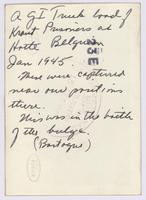 A GI Truck load of
Kraut Prisoners at
Hotte Belgium
Jan 1945.
These were captured
near our positions
there.
This was in the battle
of the bulge.
(Bastogne)
23E